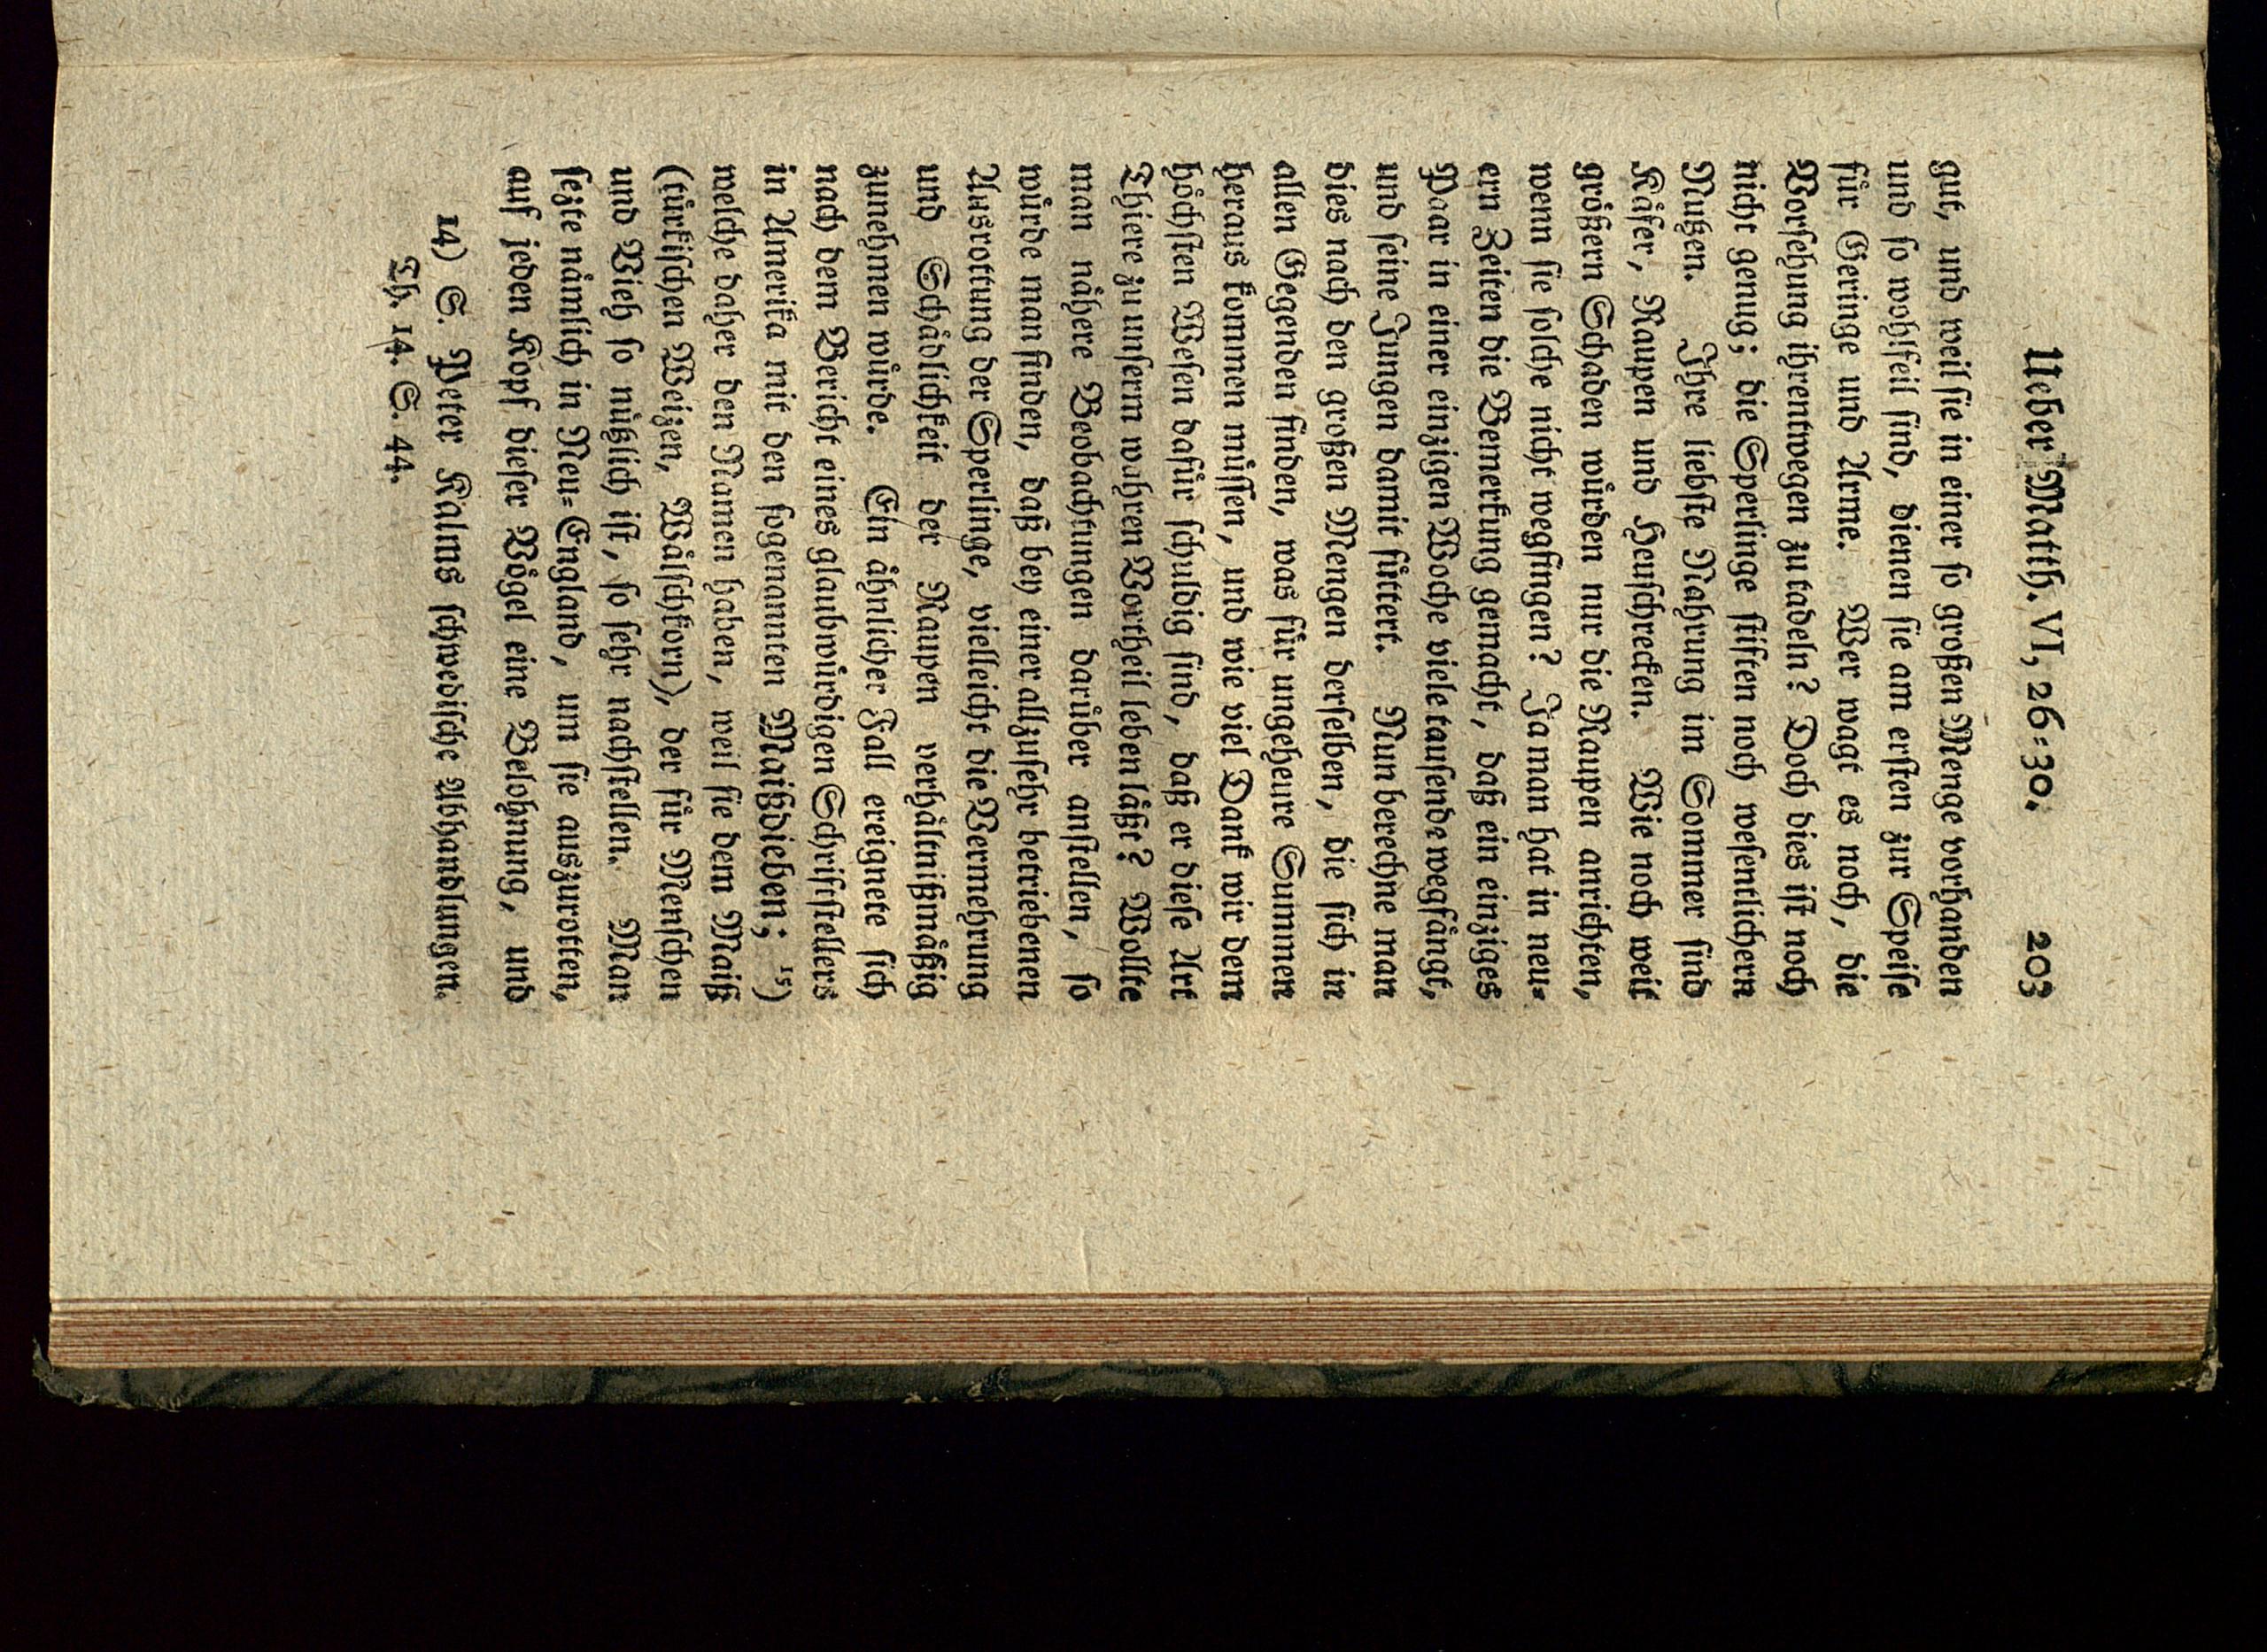 Ueber Matth. VI, 26=30. 203
gut, und weil ſie in einer ſo großen Menge vorhanden
und ſo wohlfeil ſind, dienen ſie am erſten zur Speiſe
für Geringe und Arme. Wer wagt es noch, die
Vorſehung ihrentwegen zu tadeln? Doch dies iſt noch
nicht genug; die Sperlinge ſtiften noch weſentlichern
Nutzen. Ihre liebſte Nahrung im Sommer ſind
Käfer, Raupen und Heuſchrecken. Wie noch weit
größern Schaden würden nur die Raupen anrichten,
wenn ſie ſolche nicht wegfingen? Ja man hat in neu=
ern Zeiten die Bemerkung gemacht, daß ein einziges
Paar in einer einzigen Woche viele tauſende wegfängt,
und ſeine Jungen damit füttert. Nun berechne man
dies nach den großen Mengen derſelben, die ſich in
allen Gegenden finden, was für ungeheure Summen
heraus kommen müſſen, und wie viel Dank wir dem
höchſten Weſen dafür ſchuldig ſind, daß er dieſe Art
Thiere zu unſerm wahren Vortheil leben läßt? Wollte
man nähere Beobachtungen darüber anſtellen, ſo
würde man finden, daß bey einer allzuſehr betriebenen
Ausrottung der Sperlinge, vielleicht die Vermehrung
und Schädlichkeit der Raupen verhältnißmäßig
zunehmen würde. Ein ähnlicher Fall ereignete ſich
nach dem Bericht eines glaubwürdigen Schriftſtellers
in Amerika mit den ſogenannten Maißdieben; ¹⁵)
welche daher den Namen haben, weil ſie dem Maiß
(türkiſchen Weizen, Wälſchkorn), der für Menſchen
und Vieh ſo nützlich iſt, ſo ſehr nachſtellen. Man
ſezte nämlich in Neu=England, um ſie auszurotten,
auf jeden Kopf dieſer Vögel eine Belohnung, und
14) S. Peter Kalms ſchwediſche Abhandlungen.
Th. 14. S. 44.